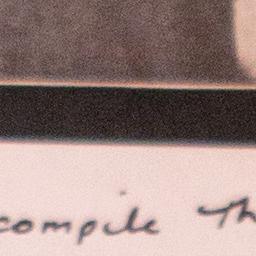 compile Th